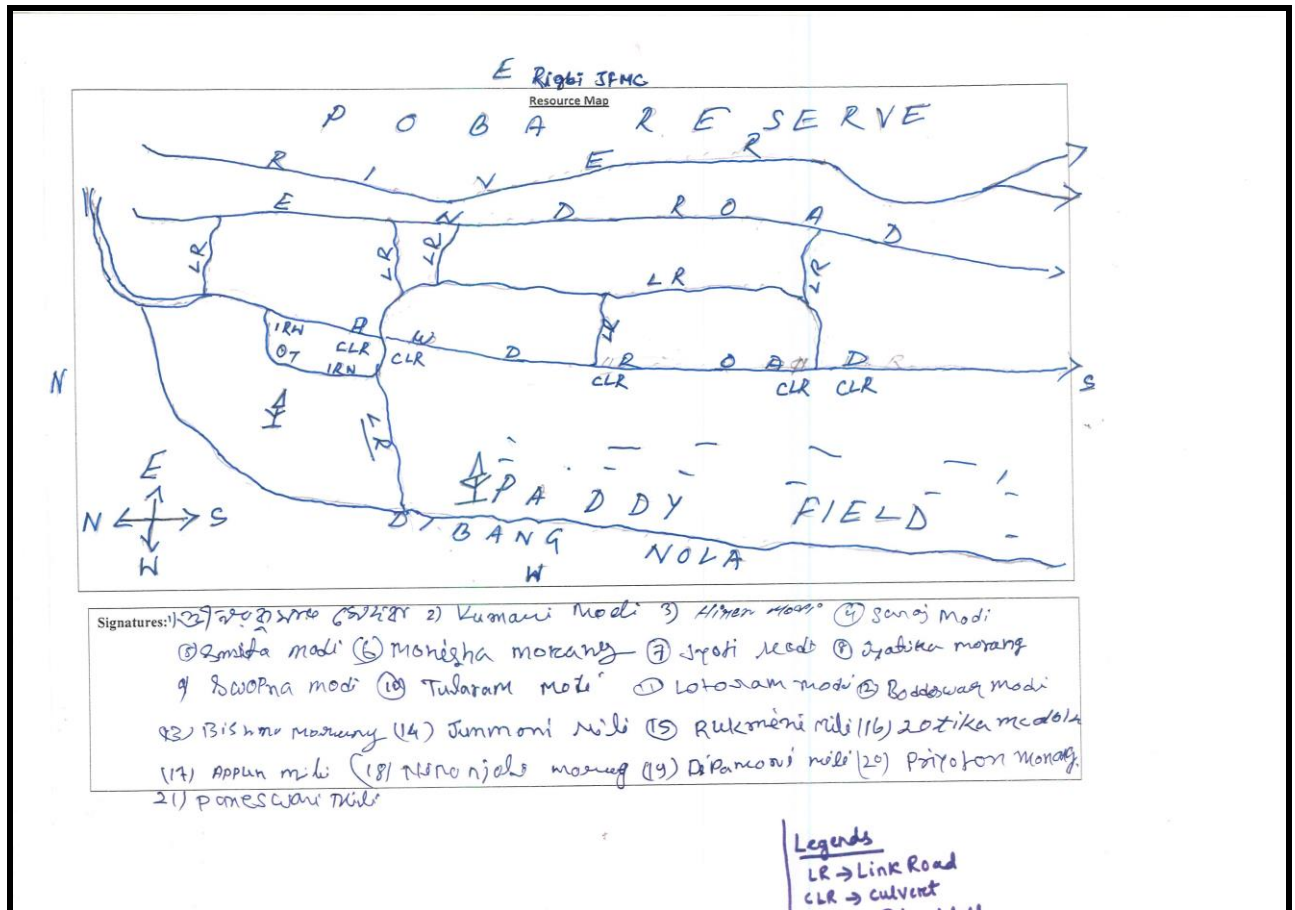 E Rigbi JFMC
Resource Map
POBA RESERVE
RIVER
E N D ROAD
LR LR LR LR LR
LR
IRW
P W D ROAD
CLR CLR CLR CLR CLR
OT
IRW
LR
N S
E
N S
W
PADDY FIELD
DIBANG NOLA
W
Signatures: 1) 2) Kumari Modi 3) Hiren Modi (4) Saroj Modi
(5) Smita modi (6) Monisha morang (7) Jyoti modi (8) Jyotika morang
9) Swopna modi (10) Tularam Modi (11) Lotoram modi (12) Boddeswar modi
(13) Bishmo Morang (14) Junmoni Mili (15) Rukmeni mili (16)
(17) Appun mili (18) morang (19) mili (20) morang
21) mili
Legends
LR → Link Road
CLR → culvert